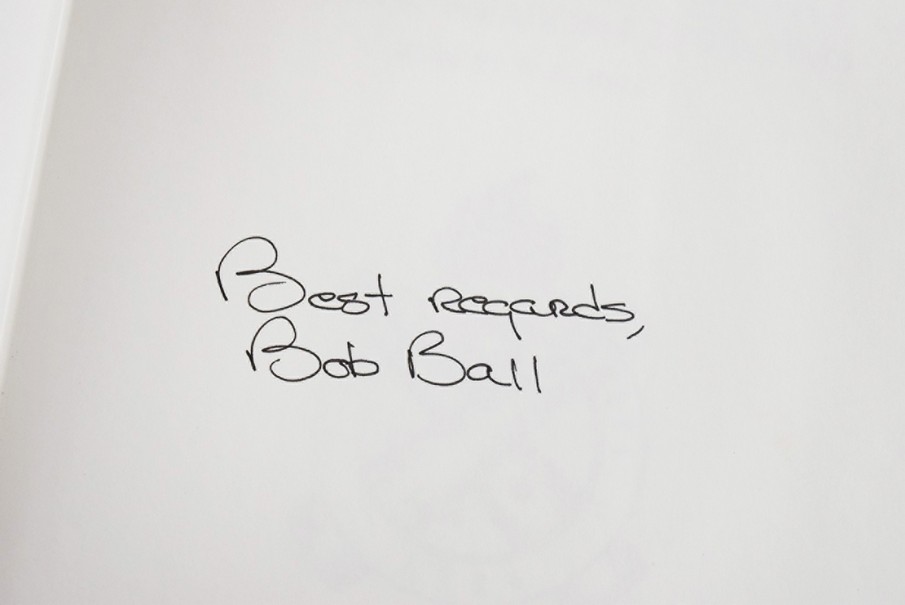 Best regards,
Bob Ball